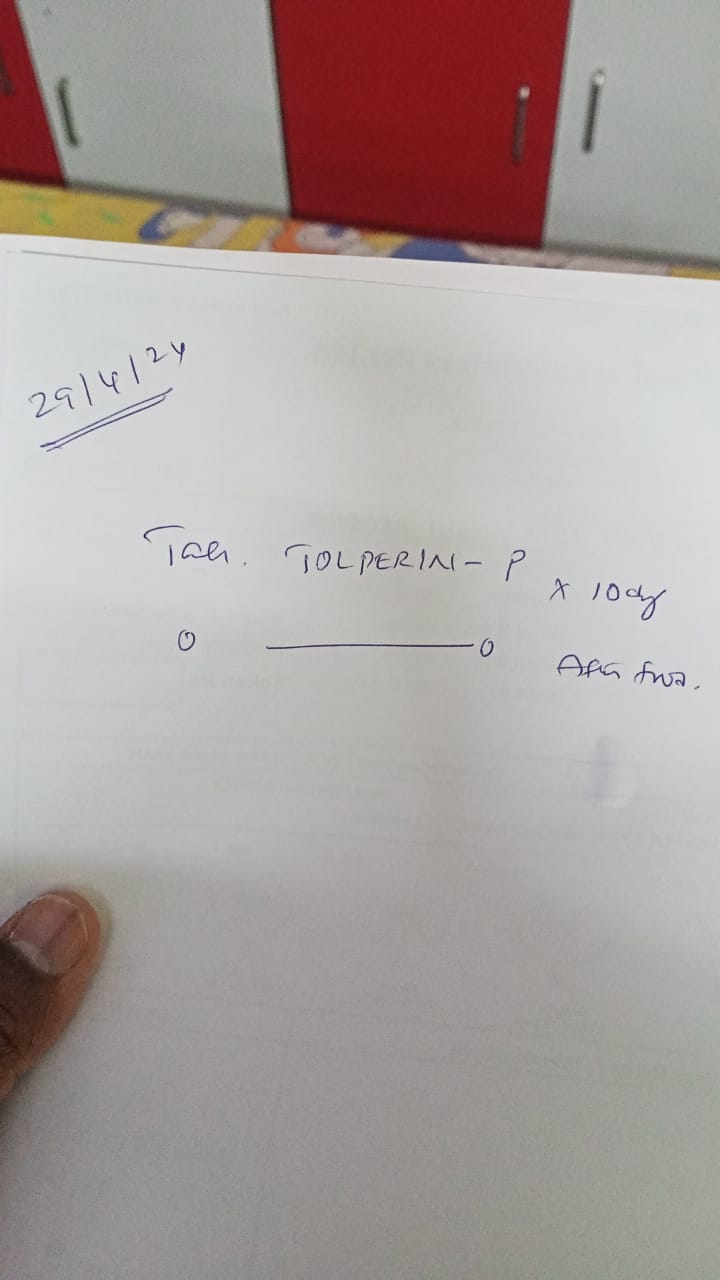 29/4/24
Tab. TOLPERIN-P x 10dy
0 ——— 0
After food.